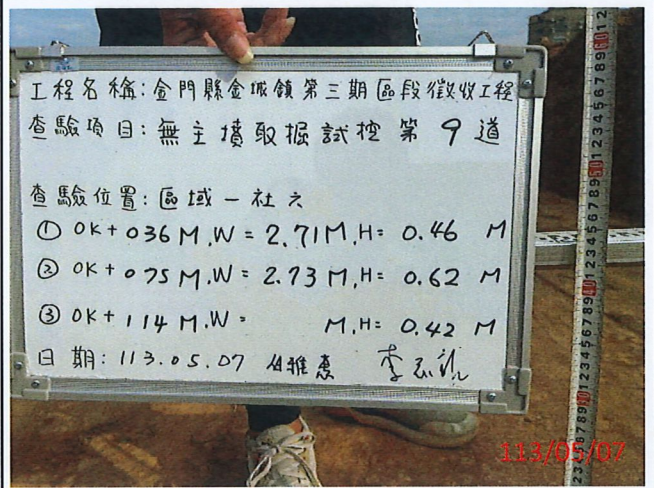 工程名稱:金門縣金城鎮第三期區段徵收工程
查驗項目:無主墳取掘試挖 第 9 道
查驗位置:區域一社六
① 0K+036M,W=2.71M,H=0.46 M
② 0K+075M,W=2.73M,H=0.62 M
③ 0K+114M,W= M,H=0.42 M
日期:113.05.07 雅惠 李
113/05/07